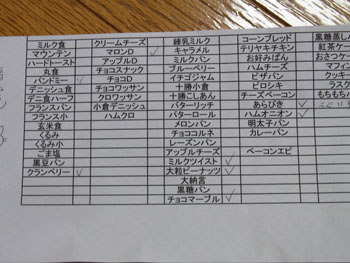 ミルク食
マウンテン
ハードトースト
丸食
パンドミー
デニッシュ食
デニ食ハーフ
フランスパン
フランス小
玄米食
くるみ
くるみ小
ごま塩
黒豆パン
クランベリー
クリームチーズ
マロンD
アップルD
チョコスナック
チョコD
チョコワッサン
クロワッサン
小倉デニッシュ
ハムクロ
練乳ミルク
キャラメル
ミルクパン
ブルーベリー
イチゴジャム
十勝小倉
十勝こしあん
バターリッチ
バターロール
メロンパン
チョココルネ
レーズンパン
アップルチーズ
ミルクツイスト
大粒ピーナッツ
大納言
黒糖パン
チョコマーブル
コーンブレッド
テリヤキチキン
お好みぱん
ハムチーズ
ピザパン
ピロシキ
チーズベーコン
あらびき
ハムオニオン
明太子パン
カレーパン
ベーコンエピ
黒糖蒸し
紅茶ケー
おさつケ
マフィ
クッキ
ラスク
もちもち